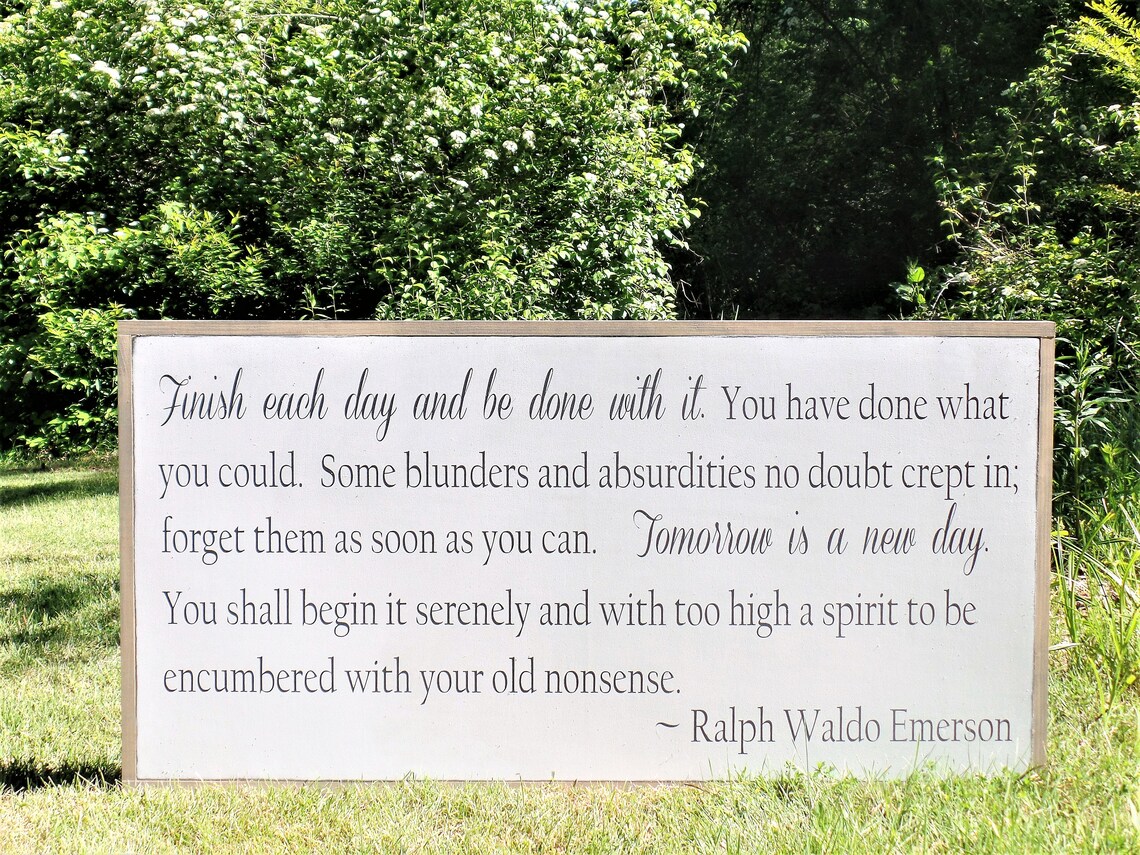 Finish each day and be done with it. You have done what
you could. Some blunders and absurdities no doubt crept in;
forget them as soon as you can. Tomorrow is a new day.
You shall begin it serenely and with too high a spirit to be
encumbered with your old nonsense.
~ Ralph Waldo Emerson